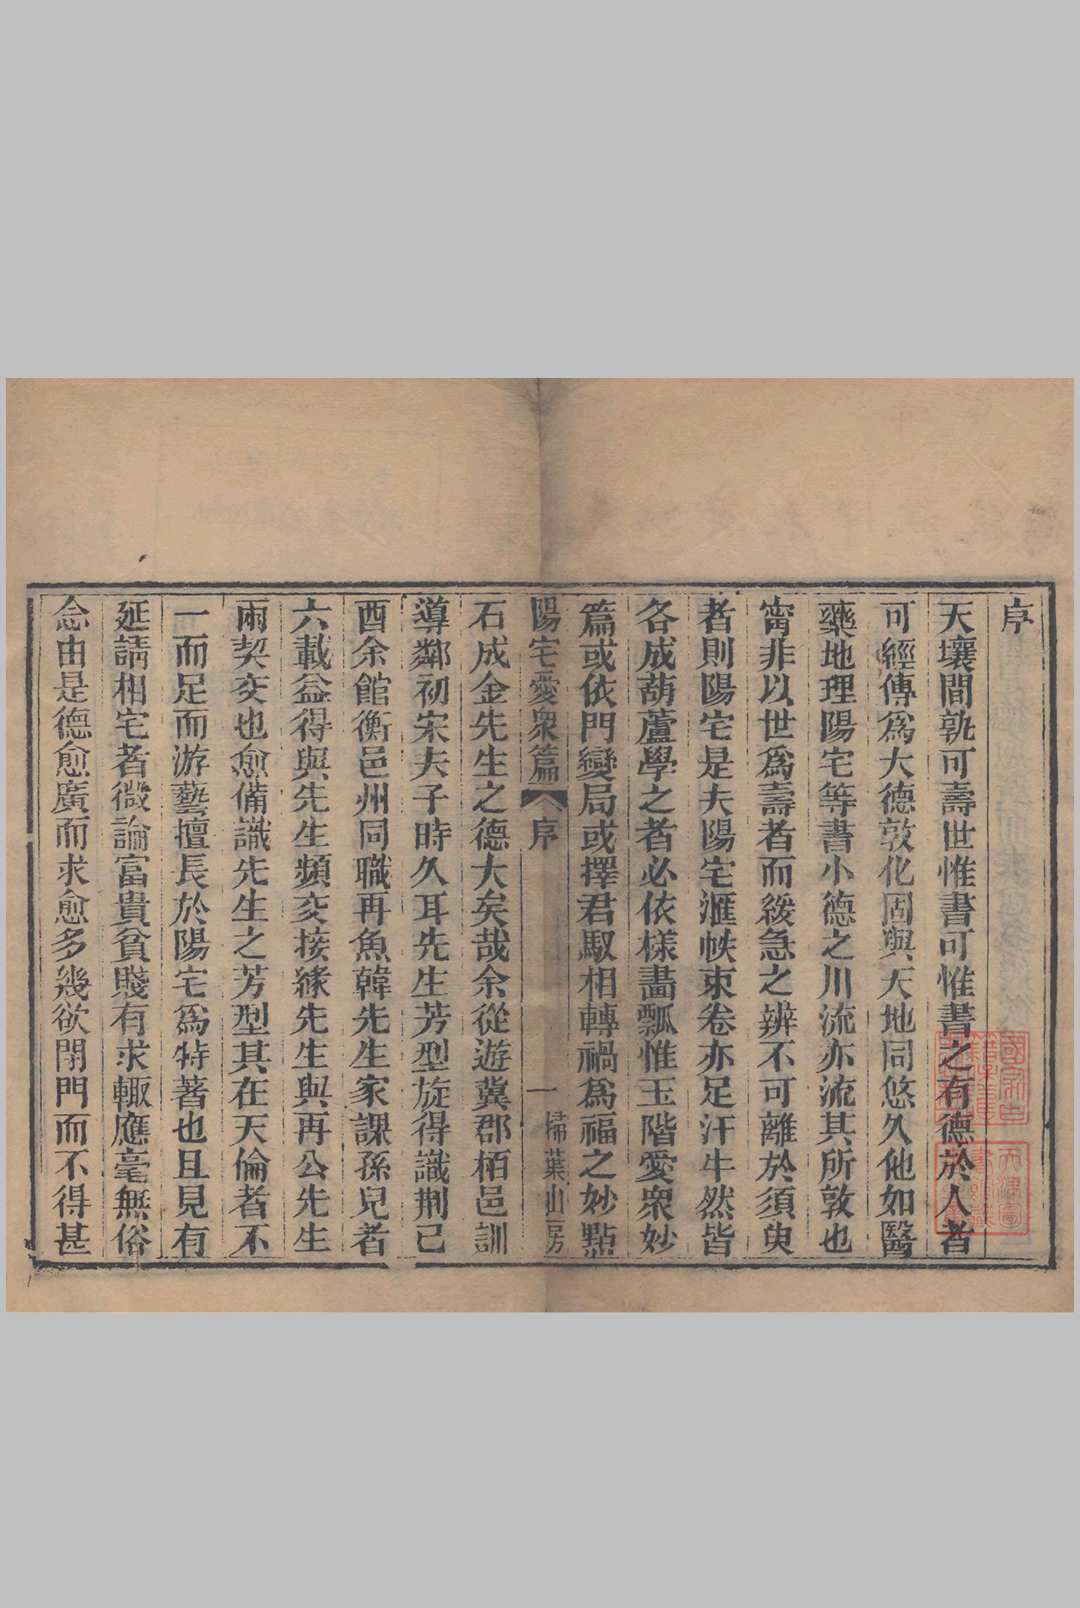 序
天壤間孰可壽世惟書可惟書之有德於人者
可經傳爲大德敦化固與天地同悠久他如醫
藥地理陽宅等書小德之川流亦流其所敦也
甯非以世爲壽者而緩急之辨不可離於須臾
者則陽宅是夫陽宅滙帙束卷亦足汗牛然皆
各成葫蘆學之者必依樣畵瓢惟玉階愛衆妙
篇或依門變局或擇君馭相轉禍爲福之妙點
陽宅愛衆篇 序 一 掃葉山房
石成金先生之德大矣哉余從遊冀郡栢邑訓
導鄰初宋夫子時久耳先生芳型旋得識荆己
酉余館衡邑州同職再魚韓先生家課孫兒者
六載益得與先生頻交接緣先生與再公先生
兩契交也愈備識先生之芳型其在天倫者不
一而足而游藝擅長於陽宅爲特著也且見有
延請相宅者微論富貴貧賤有求輙應毫無俗
念由是德愈廣而求愈多幾欲閉門而不得甚